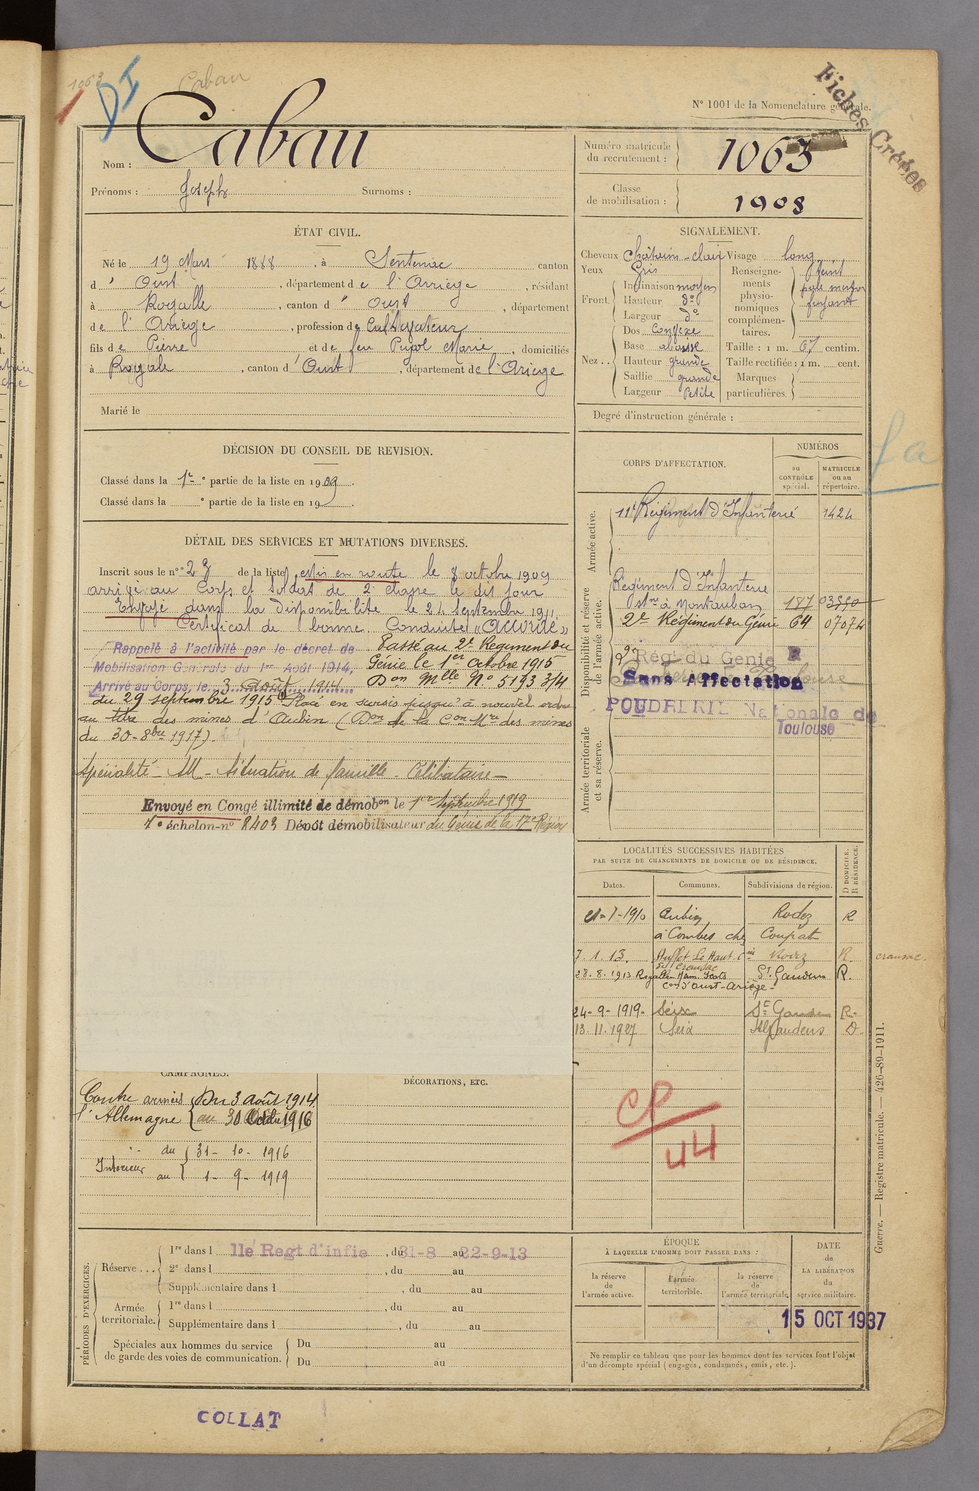 1063
DI
Cabau
Fiches Créées
N° 1001 de la Nomenclature générale.
Nom : Cabau
Prénoms : Joseph Surnoms :
Numéro matricule du recrutement : 1063
Classe de mobilisation : 1908
ÉTAT CIVIL.
Né le 19 Mars 1888, à Sentenac canton
d' Oust, département de l'Ariège, résidant
à Rogalle, canton d' Oust, département
de l'Ariège, profession de Cultivateur
fils de Pierre et de feu Pujol Marie, domiciliés
à Rogale, canton d'Oust, département de l'Ariège
Marié le
SIGNALEMENT.
Cheveux Châtain-clair Visage long
Yeux Gris
Front. Inclinaison moyen
Hauteur do
Largeur do
Nez. Dos Convexe
Base abaissé
Hauteur grande
Saillie grande
Largeur Petite
Renseignements physionomiques complémentaires. teint
Taille : 1 m. 67 centim.
Taille rectifiée : 1 m. cent.
Marques particulières.
Degré d'instruction générale :
DÉCISION DU CONSEIL DE REVISION.
Classé dans la 1re partie de la liste en 1909.
Classé dans la e partie de la liste en 19 .
CORPS D'AFFECTATION.
NUMÉROS
au CONTRÔLE spécial.
MATRICULE ou au répertoire.
Armée active.
11e Régiment d'Infanterie 1424
Disponibilité et réserve de l'armée active.
Régiment d'Infanterie
à Montauban 187 03550
2e Régiment du Génie 64 07074
2e Rég du Genie R
Sans Affectation
POUDRERIE Nationale de Toulouse
Armée territoriale et sa réserve.
fa
DÉTAIL DES SERVICES ET MUTATIONS DIVERSES.
Inscrit sous le n° 28 de la liste, Mis en route le 8 octobre 1909
arrivé au Corps et soldat de 2e classe le dit jour
Envoyé dans la disponibilité le 24 Septembre 1911
Certificat de bonne Conduite "Accordé"
Rappelé à l'activité par le décret de
Mobilisation Générale du 1er Août 1914,
Arrivé au Corps, le 3 Août 1914
Passé au 2e Régiment du
Génie le 1er Octobre 1915
Don Mlle No 5193 3/4
du 29 septembre 1915 Placé en sursis jusqu'à nouvel ordre
au titre des mines d'Aubin (Don de la Con Mre des mines
du 30-8bre 1917).
Spécialité - M - Situation de famille - Célibataire -
Envoyé en Congé illimité de démobon le 1er Septembre 1919
7e échelon-n° 8403 Dépôt démobilisateur du Génie de la 17e Région
LOCALITÉS SUCCESSIVES HABITÉES
PAR SUITE DE CHANGEMENTS DE DOMICILE OU DE RÉSIDENCE.
Dates. Communes. Subdivisions de région. D DOMICILE. R RÉSIDENCE.
21-7-1910 Aubin Rodez R
à Combes chez Coupat
7.1.13. Rodez R. cransac.
28.8.1913 Rogalle St Gaudens R.
Con d'Oust-Ariège-
24-9-1919- Seix St Gaudens R-
13.11.1927 Seix St Gaudens D
CP/44
CAMPAGNES.
Contre l'Allemagne armées Du 3 août 1914
au 30 Octobre 1916
Intérieur du 31-10-1916
au 1-9-1919
DÉCORATIONS, ETC.
Guerre. — Registre matricule. — 426-89-1911.
PÉRIODES D'EXERCICES.
Réserve... 1re dans l 11e Regt d'infie, du 31-8 au 22-9-13
2e dans l , du au
Supplémentaire dans l , du au
Armée territoriale. 1re dans l , du au
Supplémentaire dans l , du au
Spéciales aux hommes du service de garde des voies de communication. Du au
Du au
ÉPOQUE
À LAQUELLE L'HOMME DOIT PASSER DANS :
la réserve de l'armée active.
l'armée territoriale.
la réserve de l'armée territoriale.
DATE de LA LIBÉRATION du service militaire.
15 OCT 1937
Ne remplir ce tableau que pour les hommes dont les services font l'objet
d'un décompte spécial (engagés, condamnés, omis, etc.).
COLLAT